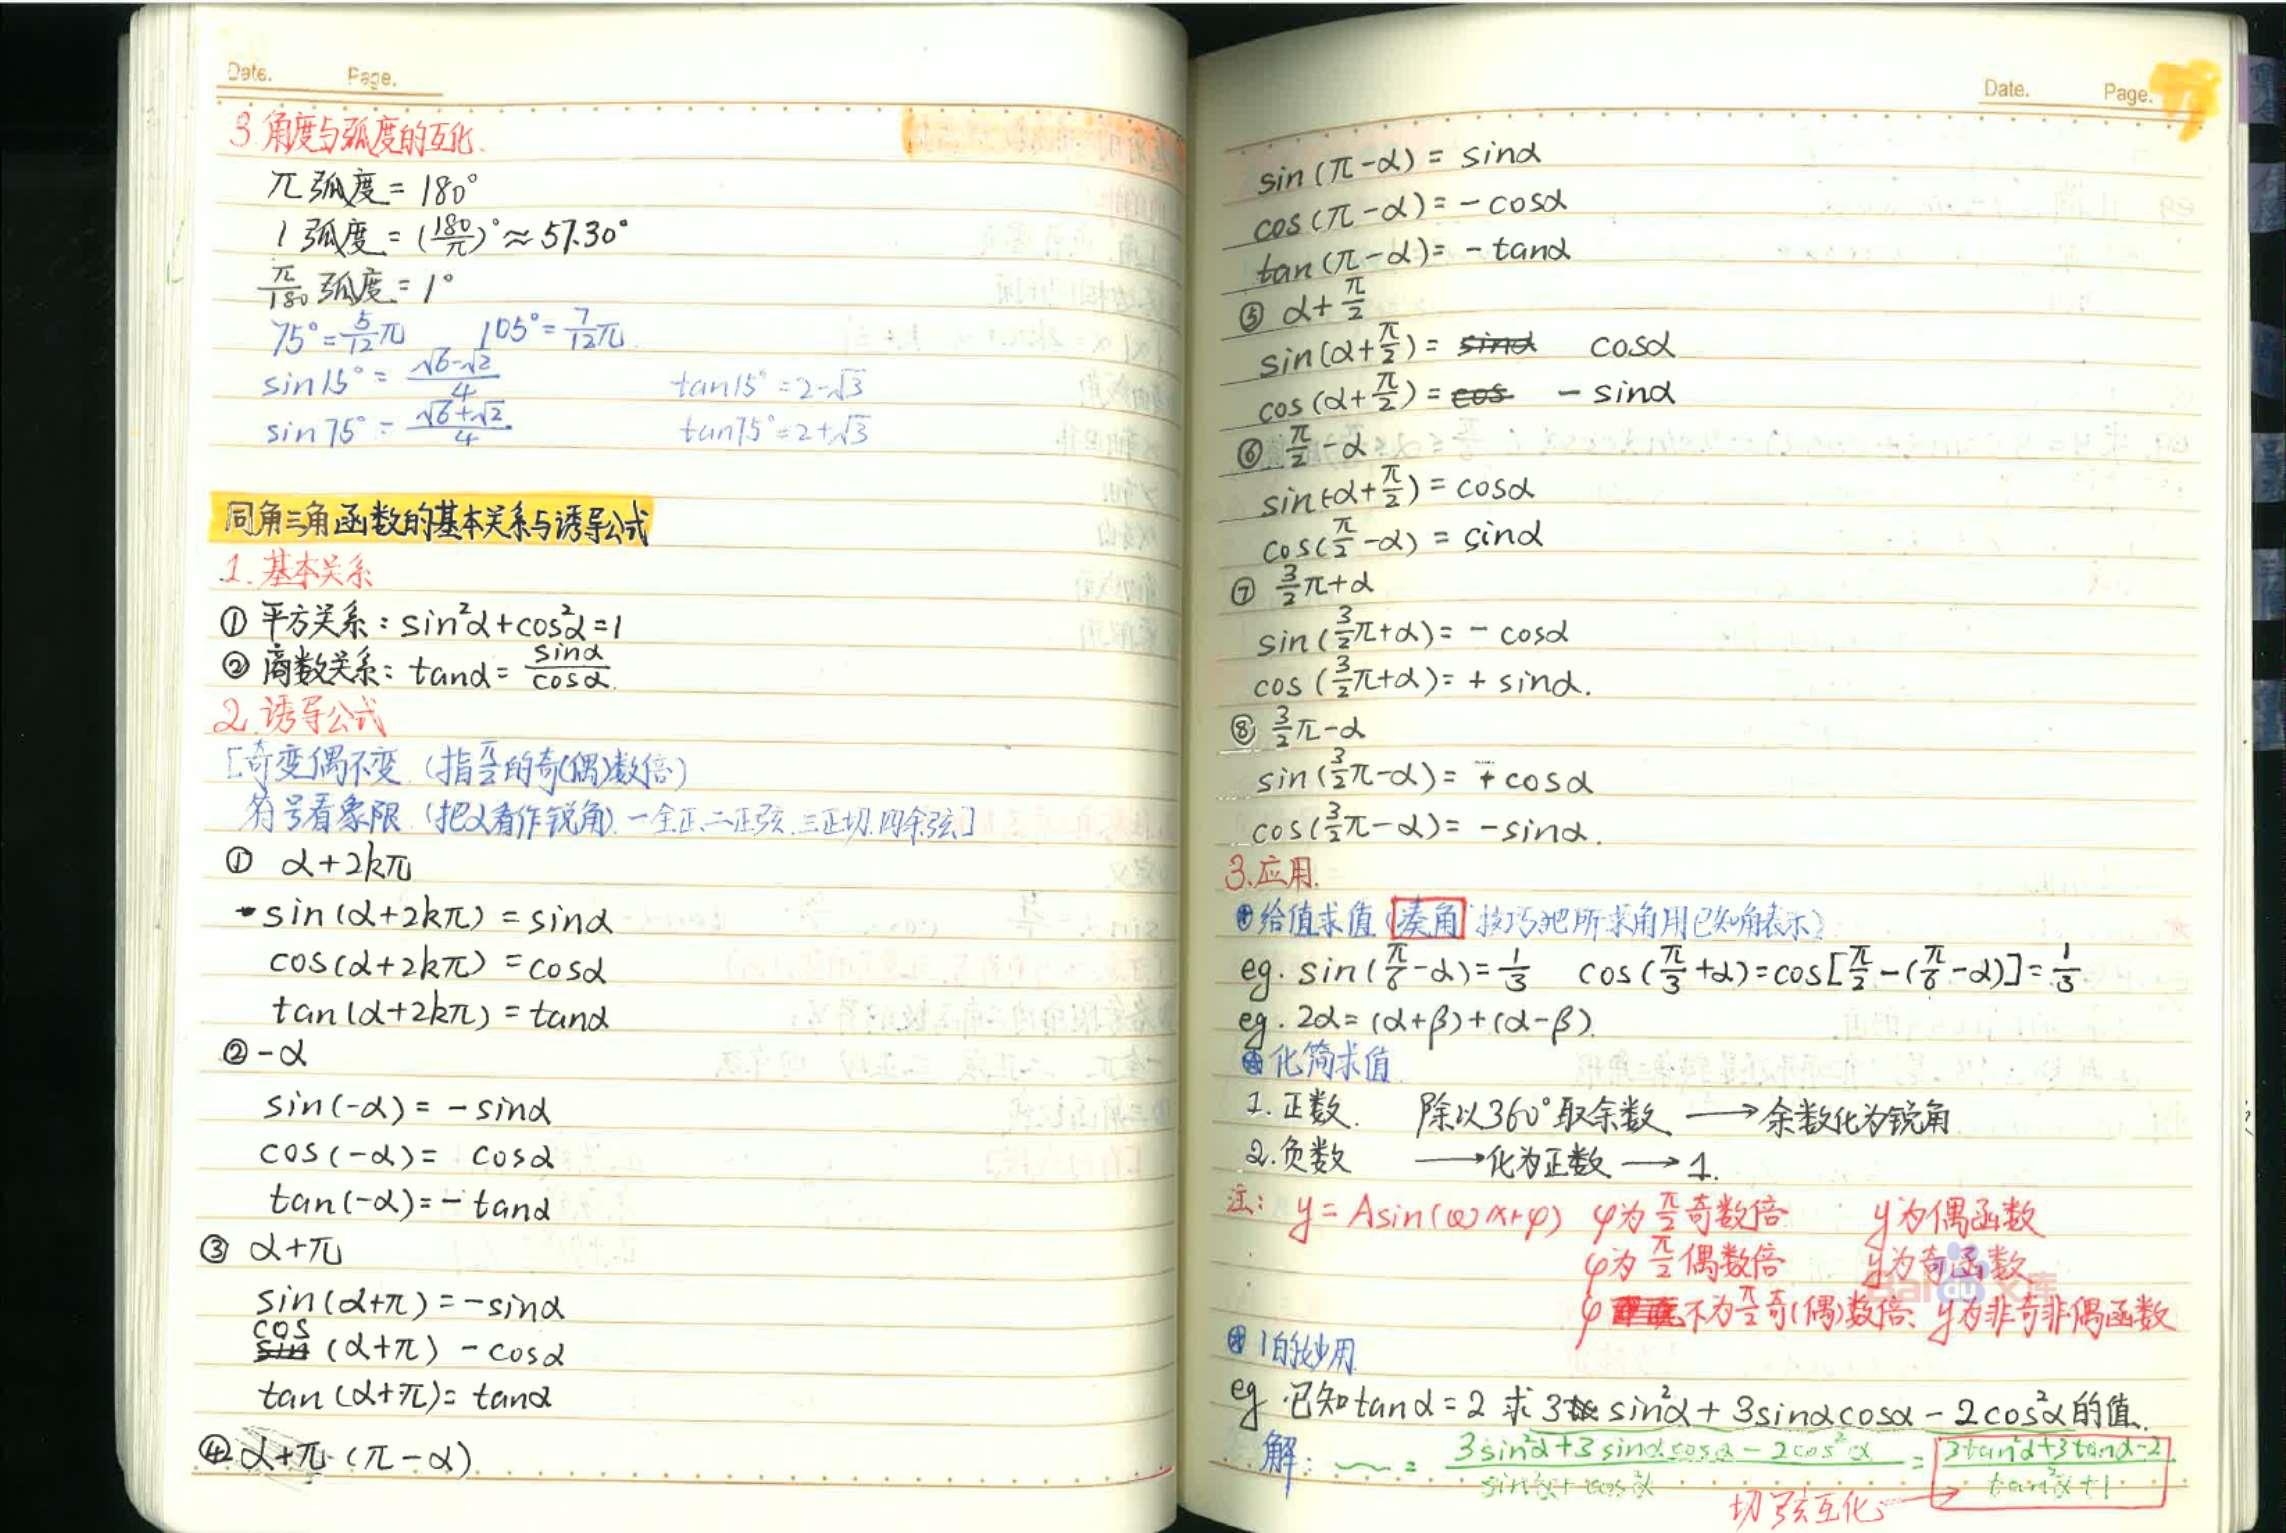 Date. Page.
3. 角度与弧度的互化.
π 弧度 = 180°
1 弧度 = (180/π)° ≈ 57.30°
π/180 弧度 = 1°
75° = 5/12 π 105° = 7/12 π.
sin15° = (√6-√2)/4 tan15° = 2-√3
sin75° = (√6+√2)/4 tan75° = 2+√3
同角三角函数的基本关系与诱导公式
1. 基本关系
① 平方关系: sin²α+cos²α=1
② 商数关系: tanα = sinα/cosα.
2. 诱导公式
[奇变偶不变. (指π/2的奇(偶)数倍)
符号看象限. (把α看作锐角). 一全正、二正弦、三正切、四余弦]
① α+2kπ
sin(α+2kπ) = sinα
cos(α+2kπ) = cosα
tan(α+2kπ) = tanα
② -α
sin(-α) = -sinα
cos(-α) = cosα
tan(-α) = - tanα
③ α+π
sin(α+π) = -sinα
cos
sin (α+π) - cosα
tan (α+π) = tanα
④ α+π (π-α)
Date. Page.
sin(π-α) = sinα
cos(π-α) = - cosα
tan(π-α) = - tanα
⑤ α+π/2
sin(α+π/2) = sinα cosα
cos(α+π/2) = cos - sinα
⑥ π/2-α
sin(-α+π/2) = cosα
cos(π/2-α) = sinα
⑦ 3/2π+α
sin(3/2π+α) = - cosα
cos(3/2π+α) = + sinα.
⑧ 3/2π-α
sin(3/2π-α) = + cosα
cos(3/2π-α) = -sinα.
3. 应用.
给值求值(凑角 技巧把所求角用已知角表示)
eg. sin(π/6-α) = 1/3 cos(π/3+α) = cos[π/2-(π/6-α)] = 1/3
eg. 2α = (α+β)+(α-β).
化简求值
1. 正数. 除以360°取余数 → 余数化为锐角
2. 负数 → 化为正数 → 1.
注: y = Asin(ωx+φ) φ为π/2奇数倍 y为偶函数
φ为π/2偶数倍 y为奇函数
Baidu文库
φ 不为π/2奇(偶)数倍、y为非奇非偶函数
1的妙用
eg. 已知tanα=2 求 3sin²α+3sinαcosα-2cos²α的值.
解: ~ = (3sin²α+3sinαcosα-2cos²α)/(sin²α+cos²α) = (3tan²α+3tanα-2)/(tan²α+1)
切弦互化 →